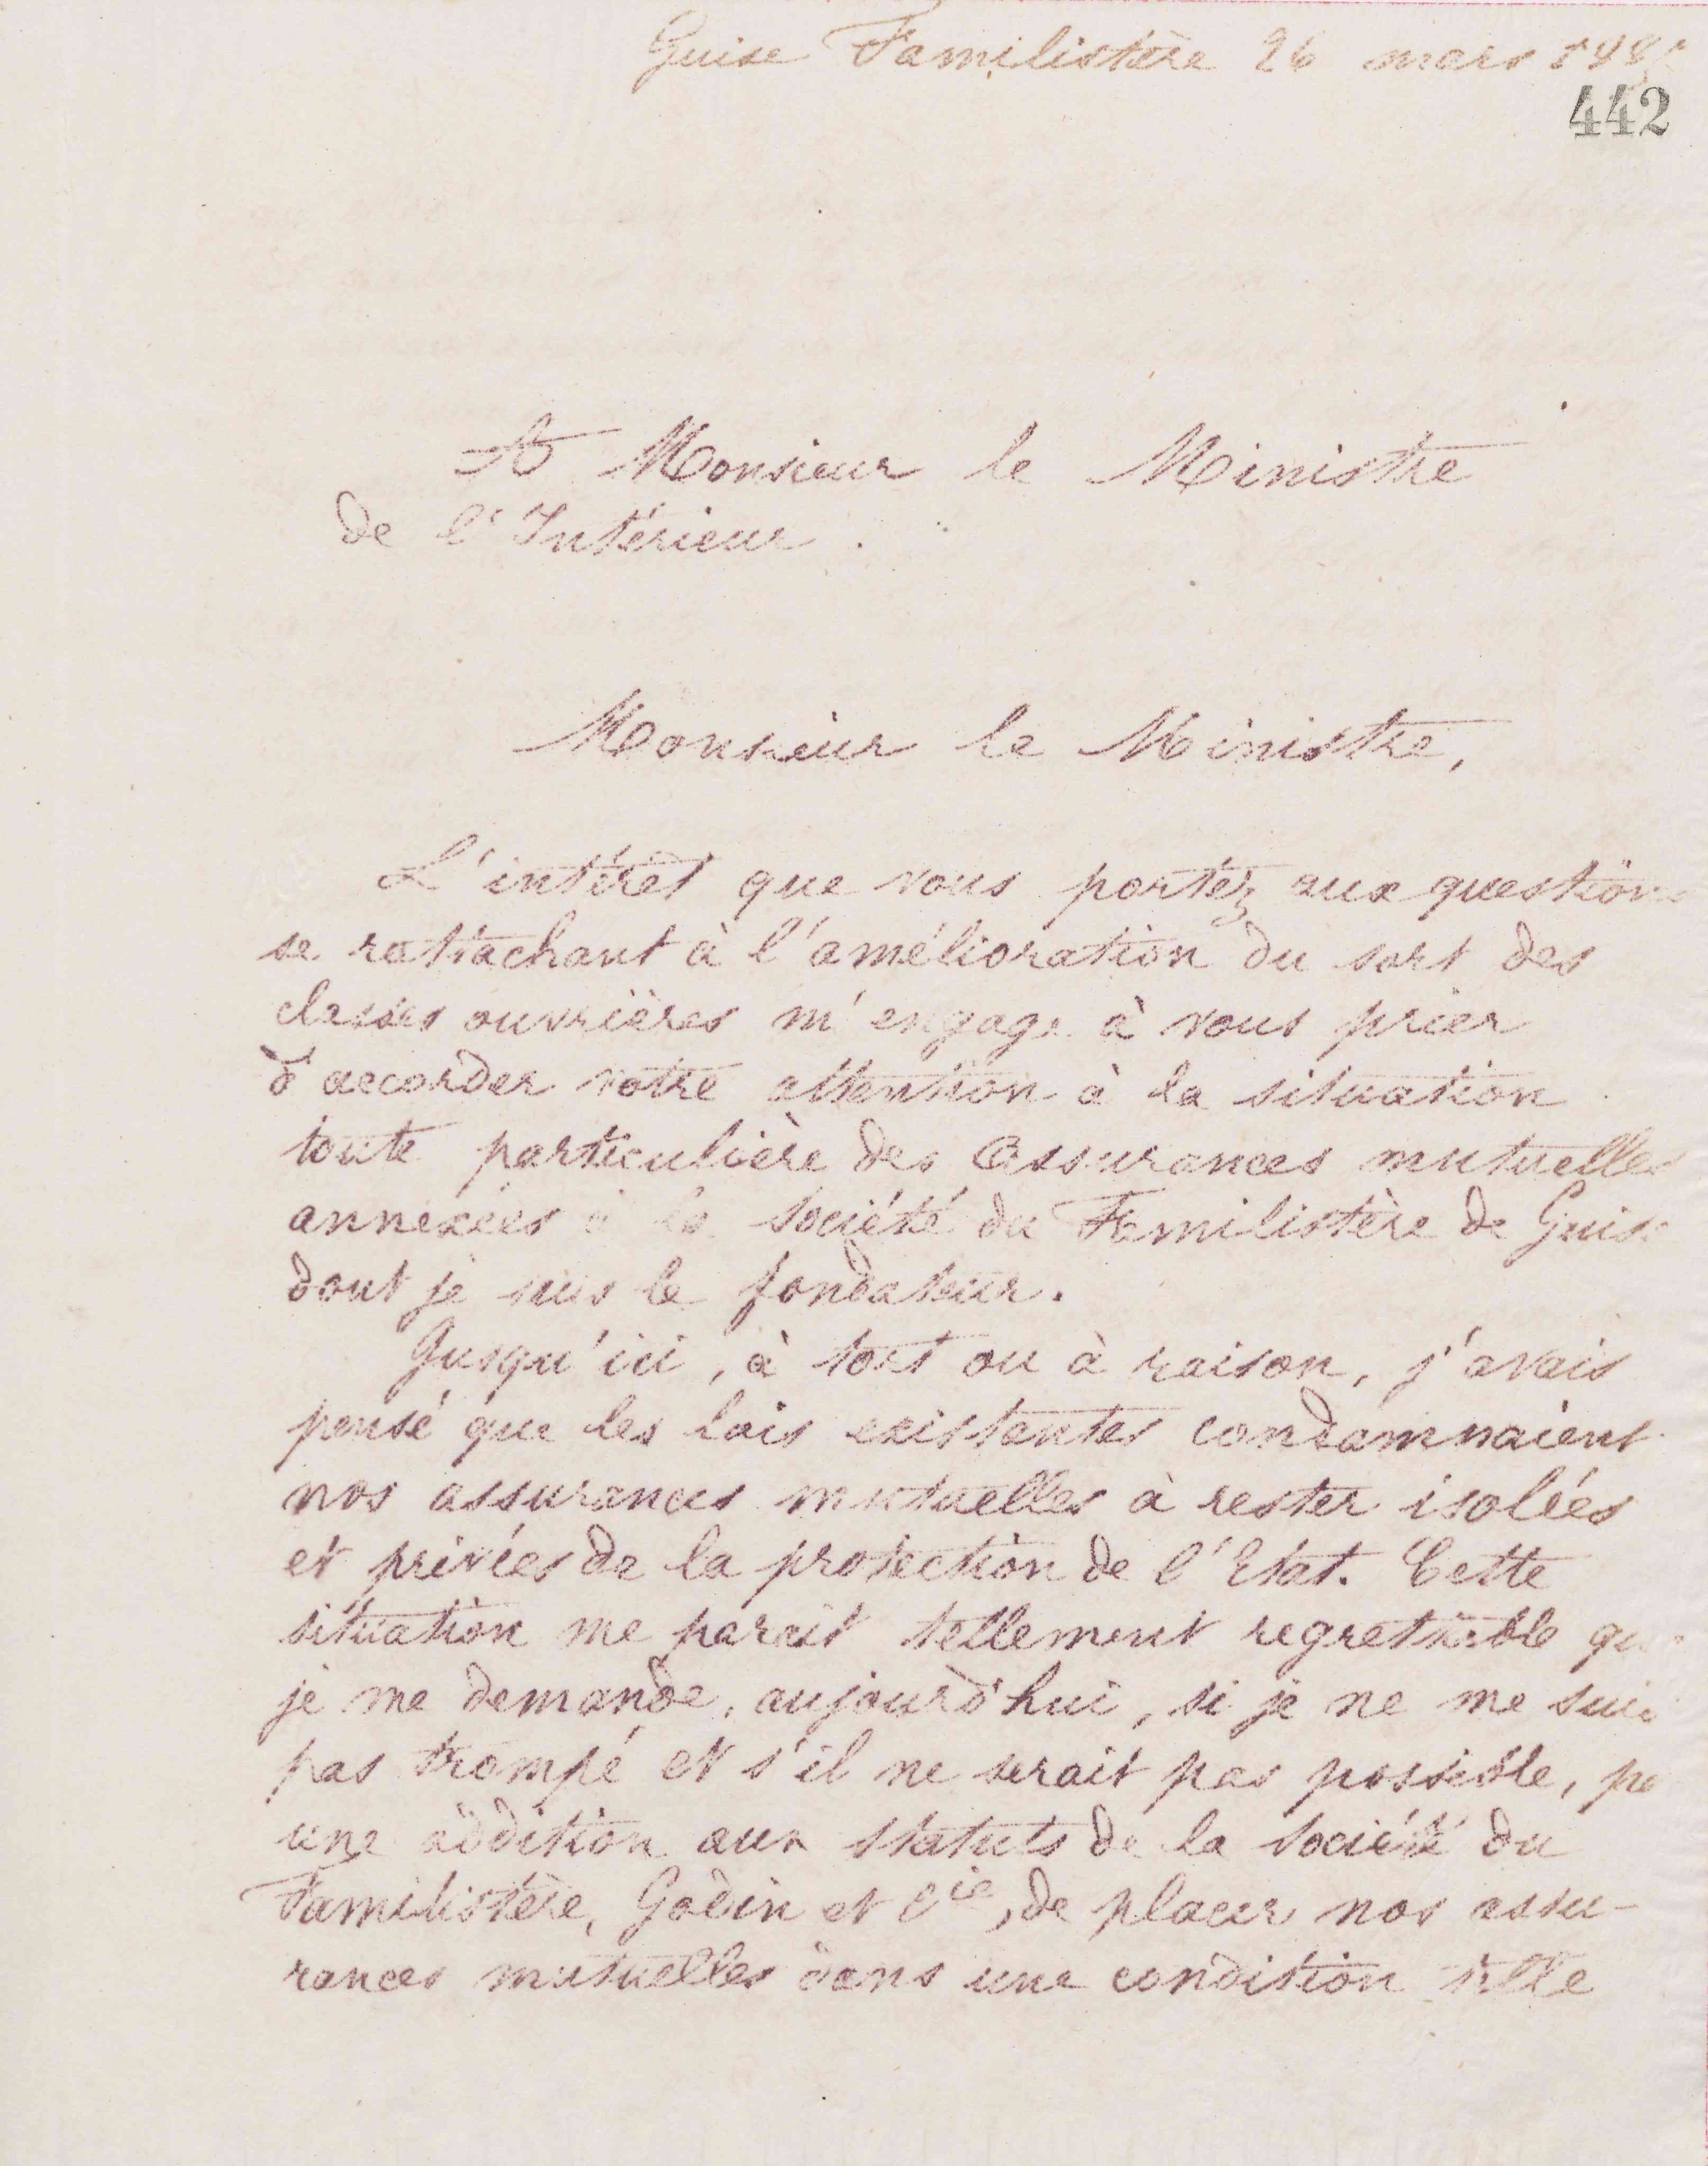 Guise Familistère 26 mars
442
A Monsieur le Ministre
de l'Intérieur.
Monsieur le Ministre,
L'intérêt que vous portez aux questions
se rattachant à l'amélioration du sort des
classes ouvrières m'engage à vous prier
d'accorder votre attention à la situation
toute particulière des Assurances mutuelles
annexées à la Société du Familistère de Guise
dont je suis le fondateur.
Jusqu'ici, à tort ou à raison, j'avais
pensé que les lois existantes condamnaient
nos assurances mutuelles à rester isolées
et privées de la protection de l'Etat. Cette
situation me parait tellement regrettable que
je me demande, aujourd'hui, si je ne me suis
pas trompé et s'il ne serait pas possible, p
une addition aux statuts de la Société du
Familistère, Godin et Cie, de placer nos assu-
rances mutuelles dans une condition telle